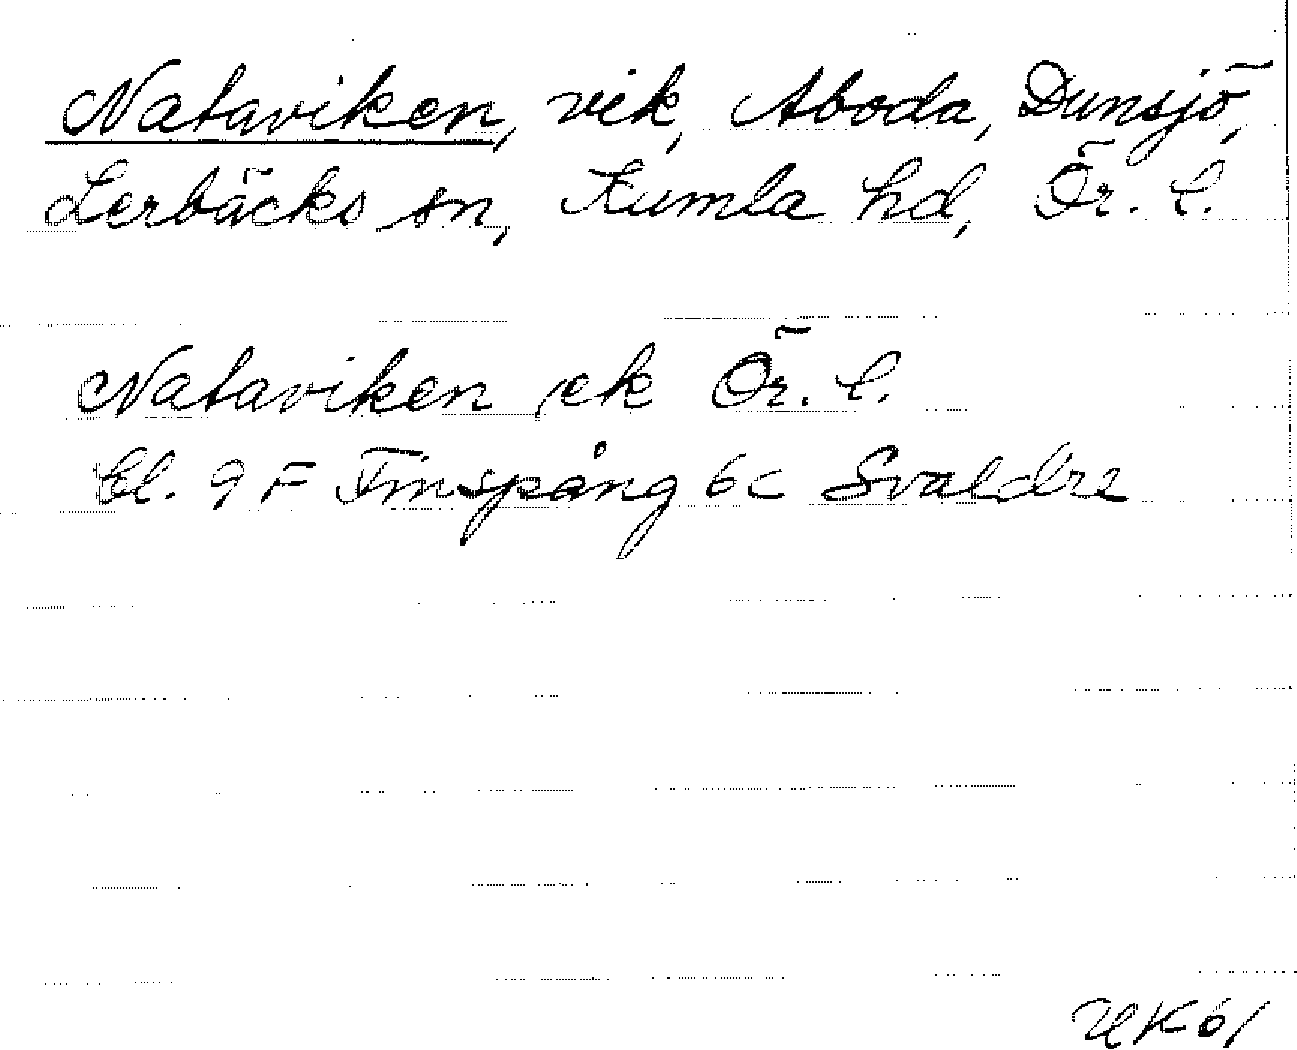 Nataviken, vik, Aboda, Dunsjö,
Lerbäcks sn, Kumla hd, Ör. l.
Nataviken ek Ör. l.
bl. 9 F Finspång 6c Svaldre
UK 61